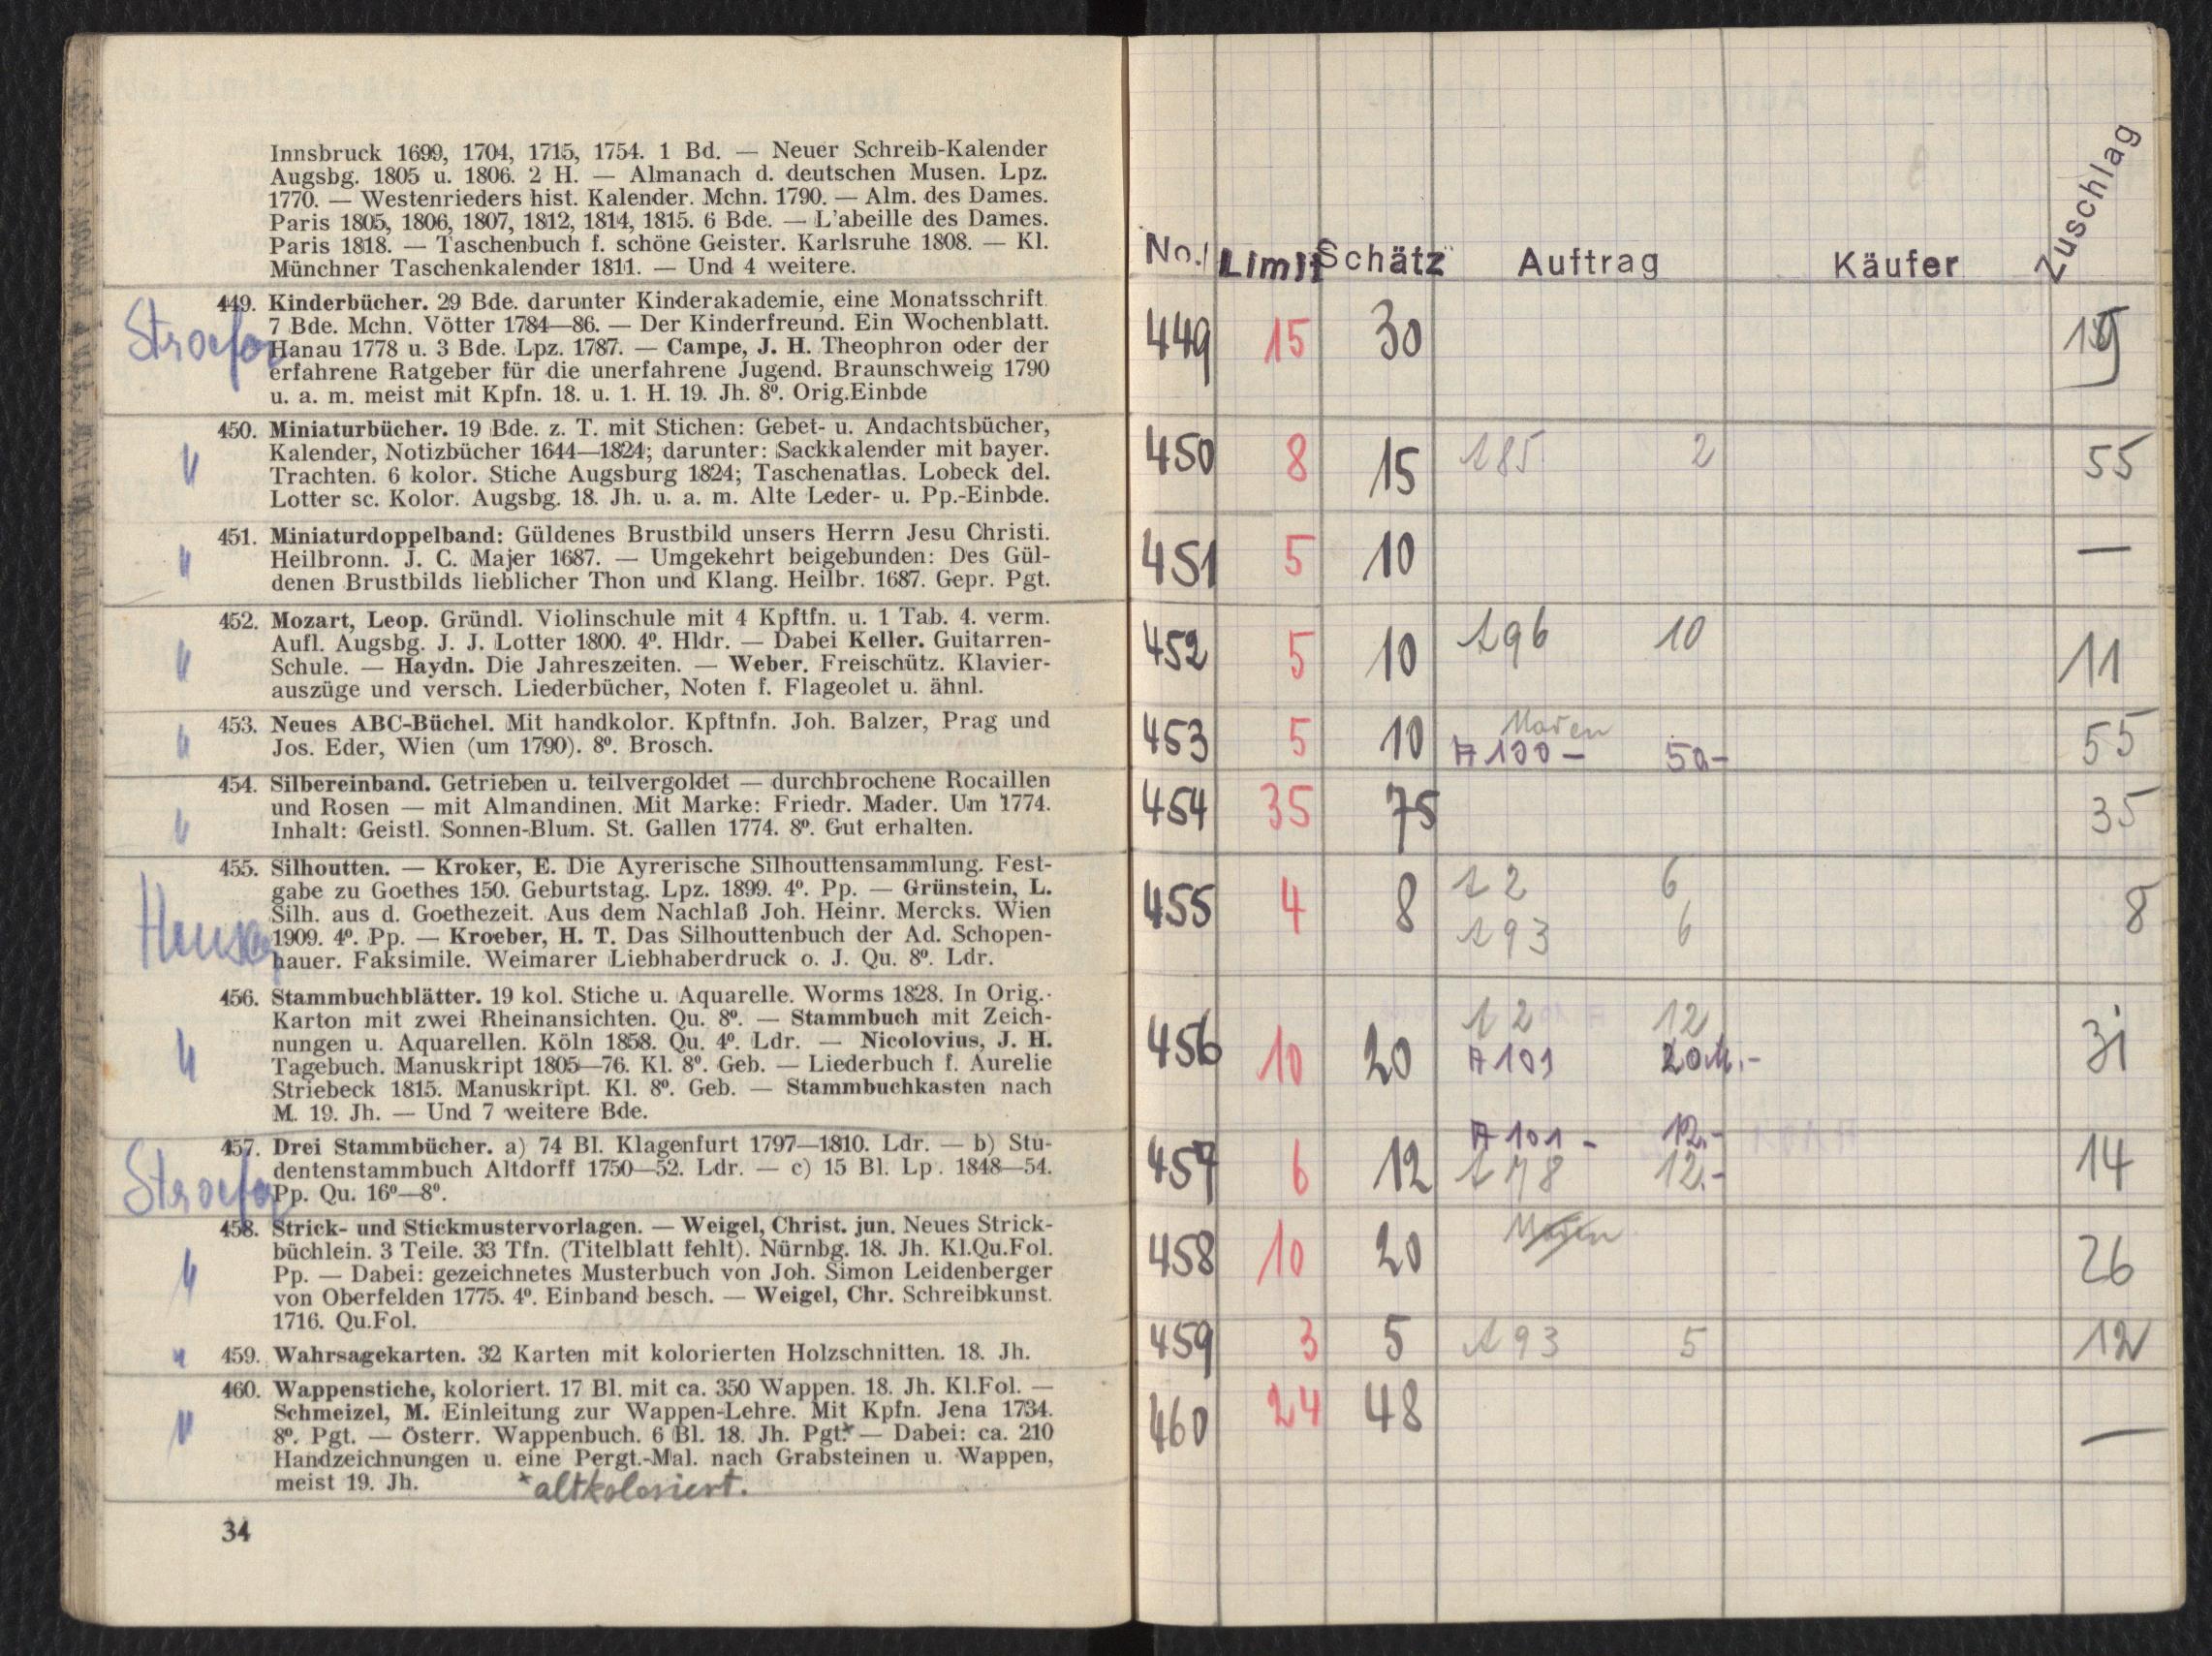 Innsbruck 1699, 1704, 1715, 1754. 1 Bd. — Neuer Schreib-Kalender
Augsbg. 1805 u. 1806. 2 H. — Almanach d. deutschen Musen. Lpz.
1770. — Westenrieders hist. Kalender. Mchn. 1790. — Alm. des Dames.
Paris 1805, 1806, 1807, 1812, 1814, 1815. 6 Bde. — L'abeille des Dames.
Paris 1818. — Taschenbuch f. schöne Geister. Karlsruhe 1808. — Kl.
Münchner Taschenkalender 1811. — Und 4 weitere.
449. Kinderbücher. 29 Bde. darunter Kinderakademie, eine Monatsschrift.
7 Bde. Mchn. Vötter 1784—86. — Der Kinderfreund. Ein Wochenblatt.
Hanau 1778 u. 3 Bde. Lpz. 1787. — Campe, J. H. Theophron oder der
erfahrene Ratgeber für die unerfahrene Jugend. Braunschweig 1790
u. a. m. meist mit Kpfn. 18. u. 1. H. 19. Jh. 8º. Orig.Einbde
450. Miniaturbücher. 19 Bde. z. T. mit Stichen: Gebet- u. Andachtsbücher,
Kalender, Notizbücher 1644—1824; darunter: Sackkalender mit bayer.
Trachten. 6 kolor. Stiche Augsburg 1824; Taschenatlas. Lobeck del.
Lotter sc. Kolor. Augsbg. 18. Jh. u. a. m. Alte Leder- u. Pp.-Einbde.
451. Miniaturdoppelband: Güldenes Brustbild unsers Herrn Jesu Christi.
Heilbronn. J. C. Majer 1687. — Umgekehrt beigebunden: Des Gül-
denen Brustbilds lieblicher Thon und Klang. Heilbr. 1687. Gepr. Pgt.
452. Mozart, Leop. Gründl. Violinschule mit 4 Kpftfn. u. 1 Tab. 4. verm.
Aufl. Augsbg. J. J. Lotter 1800. 4º. Hldr. — Dabei Keller. Guitarren-
Schule. — Haydn. Die Jahreszeiten. — Weber. Freischütz. Klavier-
auszüge und versch. Liederbücher, Noten f. Flageolet u. ähnl.
453. Neues ABC-Büchel. Mit handkolor. Kpftnfn. Joh. Balzer, Prag und
Jos. Eder, Wien (um 1790). 8º. Brosch.
454. Silbereinband. Getrieben u. teilvergoldet — durchbrochene Rocaillen
und Rosen — mit Almandinen. Mit Marke: Friedr. Mader. Um 1774.
Inhalt: Geistl. Sonnen-Blum. St. Gallen 1774. 8º. Gut erhalten.
455. Silhoutten. — Kroker, E. Die Ayrerische Silhouttensammlung. Fest-
gabe zu Goethes 150. Geburtstag. Lpz. 1899. 4º. Pp. — Grünstein, L.
Silh. aus d. Goethezeit. Aus dem Nachlaß Joh. Heinr. Mercks. Wien
1909. 4º. Pp. — Kroeber, H. T. Das Silhouttenbuch der Ad. Schopen-
hauer. Faksimile. Weimarer Liebhaberdruck o. J. Qu. 8º. Ldr.
456. Stammbuchblätter. 19 kol. Stiche u. Aquarelle. Worms 1828. In Orig.-
Karton mit zwei Rheinansichten. Qu. 8º. — Stammbuch mit Zeich-
nungen u. Aquarellen. Köln 1858. Qu. 4º. Ldr. — Nicolovius, J. H.
Tagebuch. Manuskript 1805—76. Kl. 8º. Geb. — Liederbuch f. Aurelie
Striebeck 1815. Manuskript. Kl. 8º. Geb. — Stammbuchkasten nach
M. 19. Jh. — Und 7 weitere Bde.
457. Drei Stammbücher. a) 74 Bl. Klagenfurt 1797—1810. Ldr. — b) Stu-
dentenstammbuch Altdorff 1750—52. Ldr. — c) 15 Bl. Lp. 1848—54.
Pp. Qu. 16º—8º.
458. Strick- und Stickmustervorlagen. — Weigel, Christ. jun. Neues Strick-
büchlein. 3 Teile. 33 Tfn. (Titelblatt fehlt). Nürnbg. 18. Jh. Kl.Qu.Fol.
Pp. — Dabei: gezeichnetes Musterbuch von Joh. Simon Leidenberger
von Oberfelden 1775. 4º. Einband besch. — Weigel, Chr. Schreibkunst.
1716. Qu.Fol.
459. Wahrsagekarten. 32 Karten mit kolorierten Holzschnitten. 18. Jh.
460. Wappenstiche, koloriert. 17 Bl. mit ca. 350 Wappen. 18. Jh. Kl.Fol. —
Schmeizel, M. Einleitung zur Wappen-Lehre. Mit Kpfn. Jena 1734.
8º. Pgt. — Österr. Wappenbuch. 6 Bl. 18. Jh. Pgt.* — Dabei: ca. 210
Handzeichnungen u. eine Pergt.-Mal. nach Grabsteinen u. Wappen,
meist 19. Jh.
*altkoloriert.
34
No. Limit Schätz Auftrag Käufer Zuschlag
449 15 30
450 8 15 185 2 55
451 5 10 —
452 5 10 196 10 11
453 5 10 A 100 - 50- 55
454 35 75 35
455 4 8 12 6 8
193 6
456 10 20 12 12 31
A 101 20M.-
A 101 - 12.-
457 6 12 178 12.- 14
458 10 20 26
459 3 5 193 5 12
460 24 48 —